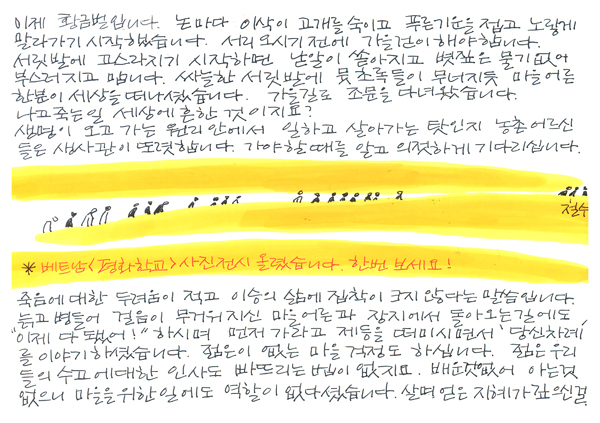 이제 황금벌입니다. 논마다 이삭이 고개를 숙이고 푸른기운을 접고 노랗게
말라가기 시작했습니다. 서리 오시기 전에 가을걷이 해야합니다.
서릿발에 고스라지기 시작하면 낟알이 쏟아지고 볏짚은 물기없어
부스러지고 맙니다. 싸늘한 서릿발에 뭇초록들이 무너지듯 마을어른
한분이 세상을 떠나셨습니다. 가을길로 조문을 다녀왔습니다.
나고죽는일 세상에 흔한 것이지요?
생명이 오고 가는 원리 안에서 일하고 살아가는 탓인지 농촌어르신
들은 생사관이 또렷합니다. 가야할때를 알고 의젓하게 기다리십니다.
철수
* 베트남 <평화학교> 사진전시 올렸습니다. 한번 보세요!
죽음에 대한 두려움이 적고 이승의 삶에 집착이 크지 않다는 말씀입니다.
늙고 병들어 걸음이 무거워지신 마을어른과 장지에서 돌아오는길에도
"이제 다 됐어!" 하시며 먼저 가라고 제등을 떠미시면서 '당신차례'
를 이야기 하셨습니다. 젊은이 없는 마을 걱정도 하십니다. 젊은우리
들의 수고에대한 인사도 빠뜨리는 법이 없지요. 배운것없어 아는것
없으니 마을을위한일에도 역할이 없다셨습니다. 살며 얻은 지혜가 깊으신걸